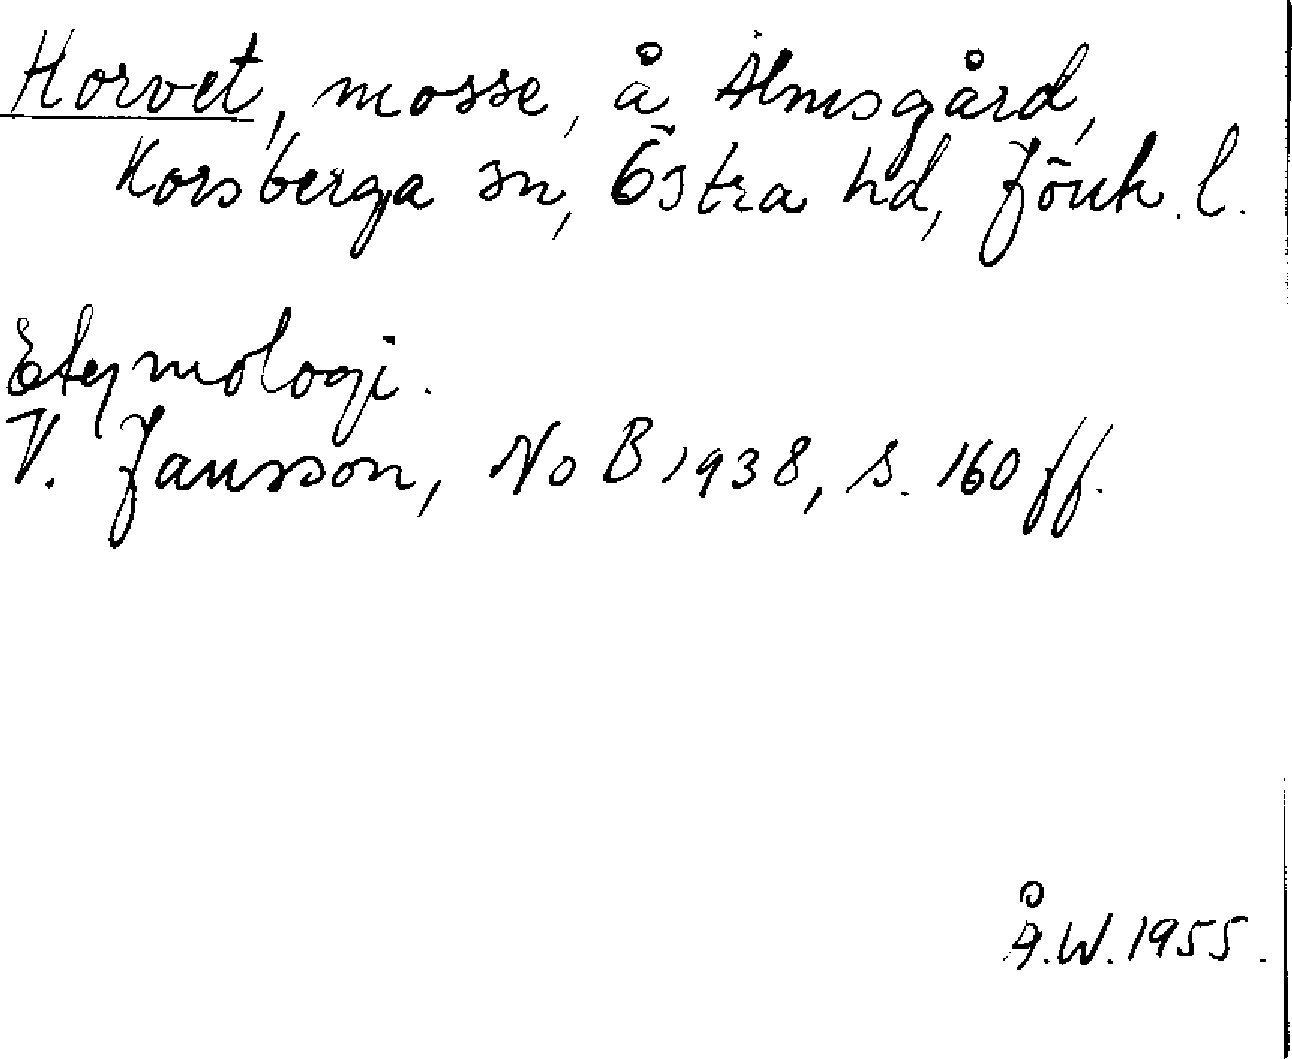 Horvet, mosse, å Älmsgård,
Korsberga sn, Östra hd, Jönk. l.
Etymologi.
V. Jansson, NoB 1938, s. 160 ff.
Å.W. 1955.